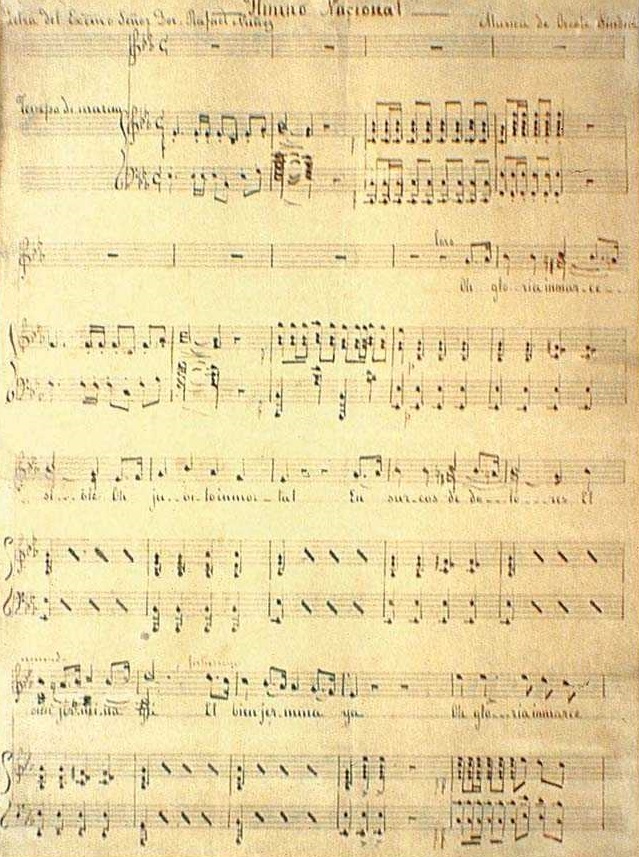 Himno Nacional
Letra del Excmo Señor Dor. Rafael Núñez Musica de Oreste Sindici
Tempo di marcia
Coro
Oh glo-ria inmar-ce-
si-ble Oh ju-bi-lo inmor-tal En sur-cos de do-lo-res El
bien jer-mi-na ya El bien jer-mina ya Oh glo-ria inmarce